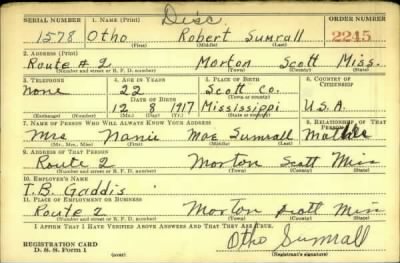 Disc
SERIAL NUMBER 1. NAME (Print) ORDER NUMBER
1578 Otho Robert Sumrall 2245
(First) (Middle) (Last)
2. ADDRESS (Print)
Route #2 Morton Scott Miss.
(Number and street or R. F. D. number) (Town) (County) (State)
3. TELEPHONE 4. AGE IN YEARS 5. PLACE OF BIRTH 6. COUNTRY OF CITIZENSHIP
None 22 Scott Co.
DATE OF BIRTH (Town or county)
12 8 1917 Mississippi U.S.A.
(Exchange) (Number) (Mo.) (Day) (Yr.) (State or country)
7. NAME OF PERSON WHO WILL ALWAYS KNOW YOUR ADDRESS 8. RELATIONSHIP OF THAT PERSON
Mrs Nanie Mae Sumrall Mother
(Mr., Mrs., Miss) (First) (Middle) (Last)
9. ADDRESS OF THAT PERSON
Route 2 Morton Scott Miss
(Number and street or R. F. D. number) (Town) (County) (State)
10. EMPLOYER'S NAME
T.B. Gaddis
11. PLACE OF EMPLOYMENT OR BUSINESS
Route 2 Morton Scott Miss
(Number and street or R. F. D. number) (Town) (County) (State)
I AFFIRM THAT I HAVE VERIFIED ABOVE ANSWERS AND THAT THEY ARE TRUE.
REGISTRATION CARD Otho Sumrall
D. S. S. Form 1 (over) (Registrant's signature)